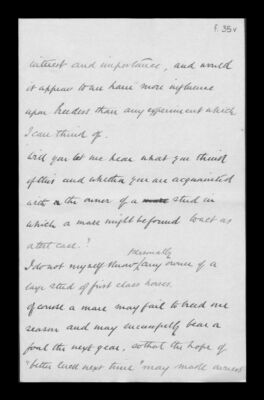 f. 35v
interest and importance, and would
it appears to me have more influence
upon breeders than any experiment which
I can think of.
Will you let me hear what you think
of this and whether you are acquainted
with the owner of a stud in
which a mare might be found to act as
a test case?
personally
I do not myself know any owner of a
large stud of first class horses.
Of course a mare may fail to breed one
season and may successfully bear a
foal the next year, so that the hope of
"better luck next time" may make owners